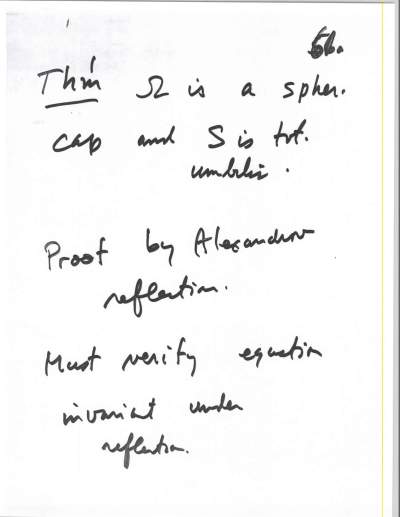 56.
Thm' Ω is a spher.
cap and S is tot.
umbilic.
Proof by Alexandrov
reflection.
Must verify equation
invariant under
reflection.